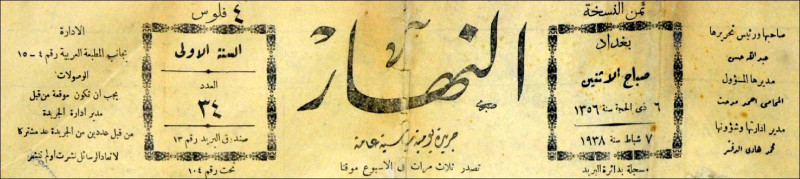 صاحبها ورئيس تحريرها
عبدالله حسن
مديرها المسؤول
المحامي احمد مدحت
مدير ادارتها وشؤونها
محمد هادي الدفتر
ثمن النسخة
بغداد
صباح الاثنين
٦ ذي الحجة سنة ١٣٥٦
٧ شباط سنة ١٩٣٨
وسجلة بدائرة البريد
النهار
جريدة يومية سياسية عامة
تصدر ثلاث مرات في الاسبوع موقتا
٤ فلوس
السنة الاولى
العدد
٣٤
صندوق البريد رقم ١٣
تحت رقم ١٠٤
الادارة
بجانب المطبعة العربية رقم ٤ - ١٥
الوصولات
يجب ان تكون موقعة من قبل
مدير ادارة الجريدة
من قبل عددين من الجريدة عد مشتركا
لا تعاد الرسائل نشرت اولم تنشر